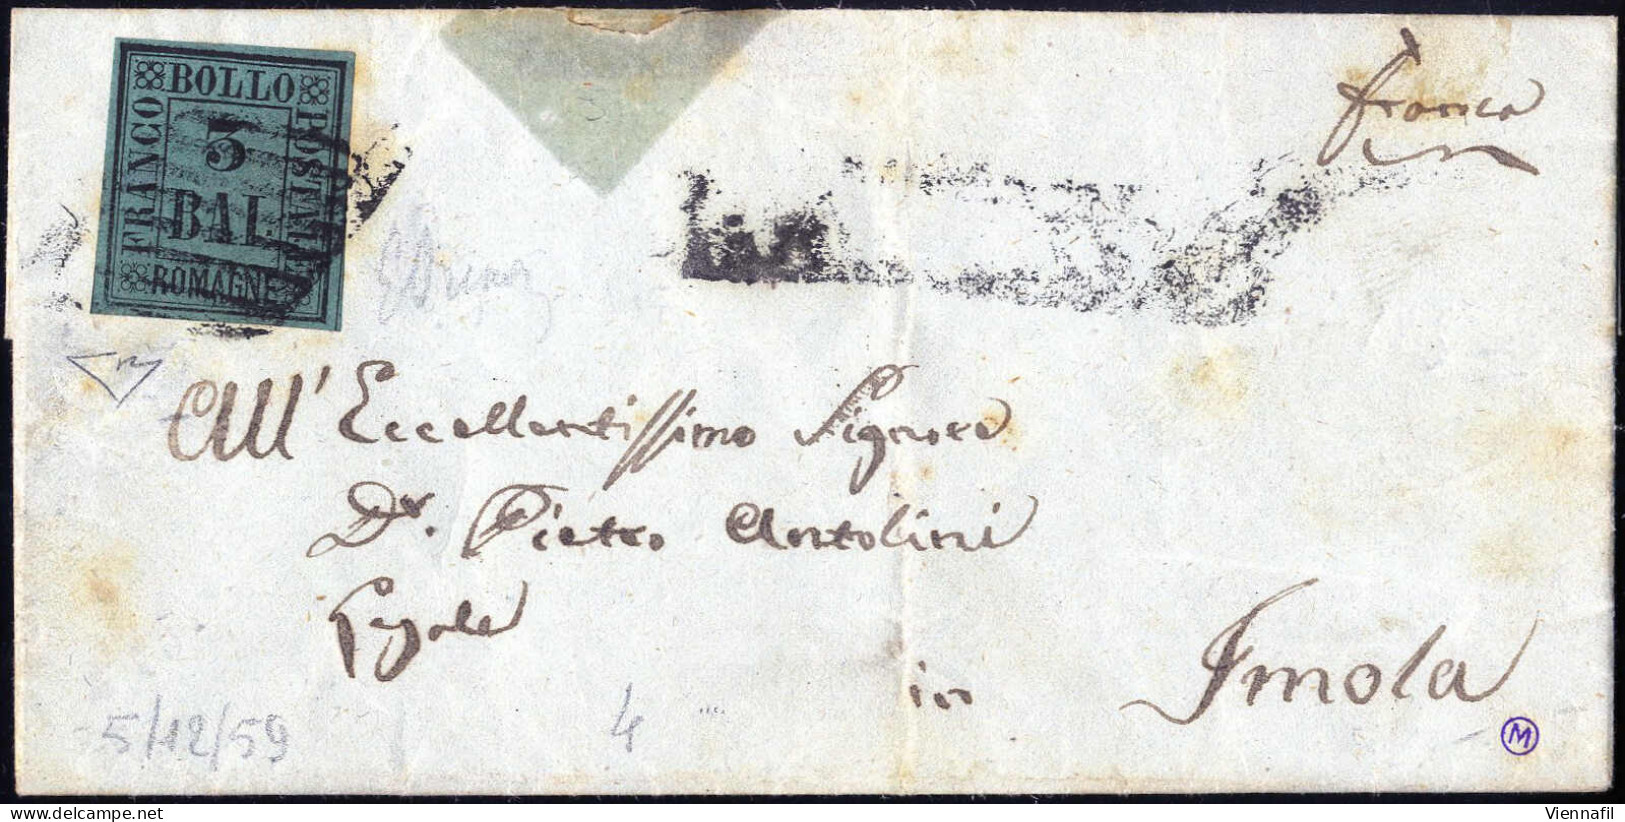 BOLLO
FRANCO
POSTALE
3
BAI.
ROMAGNE
franca
All' Eccellentissimo Signore
Dr. Pietro Antolini
Legale
in Imola
5/12/59
4
M
Viennafil